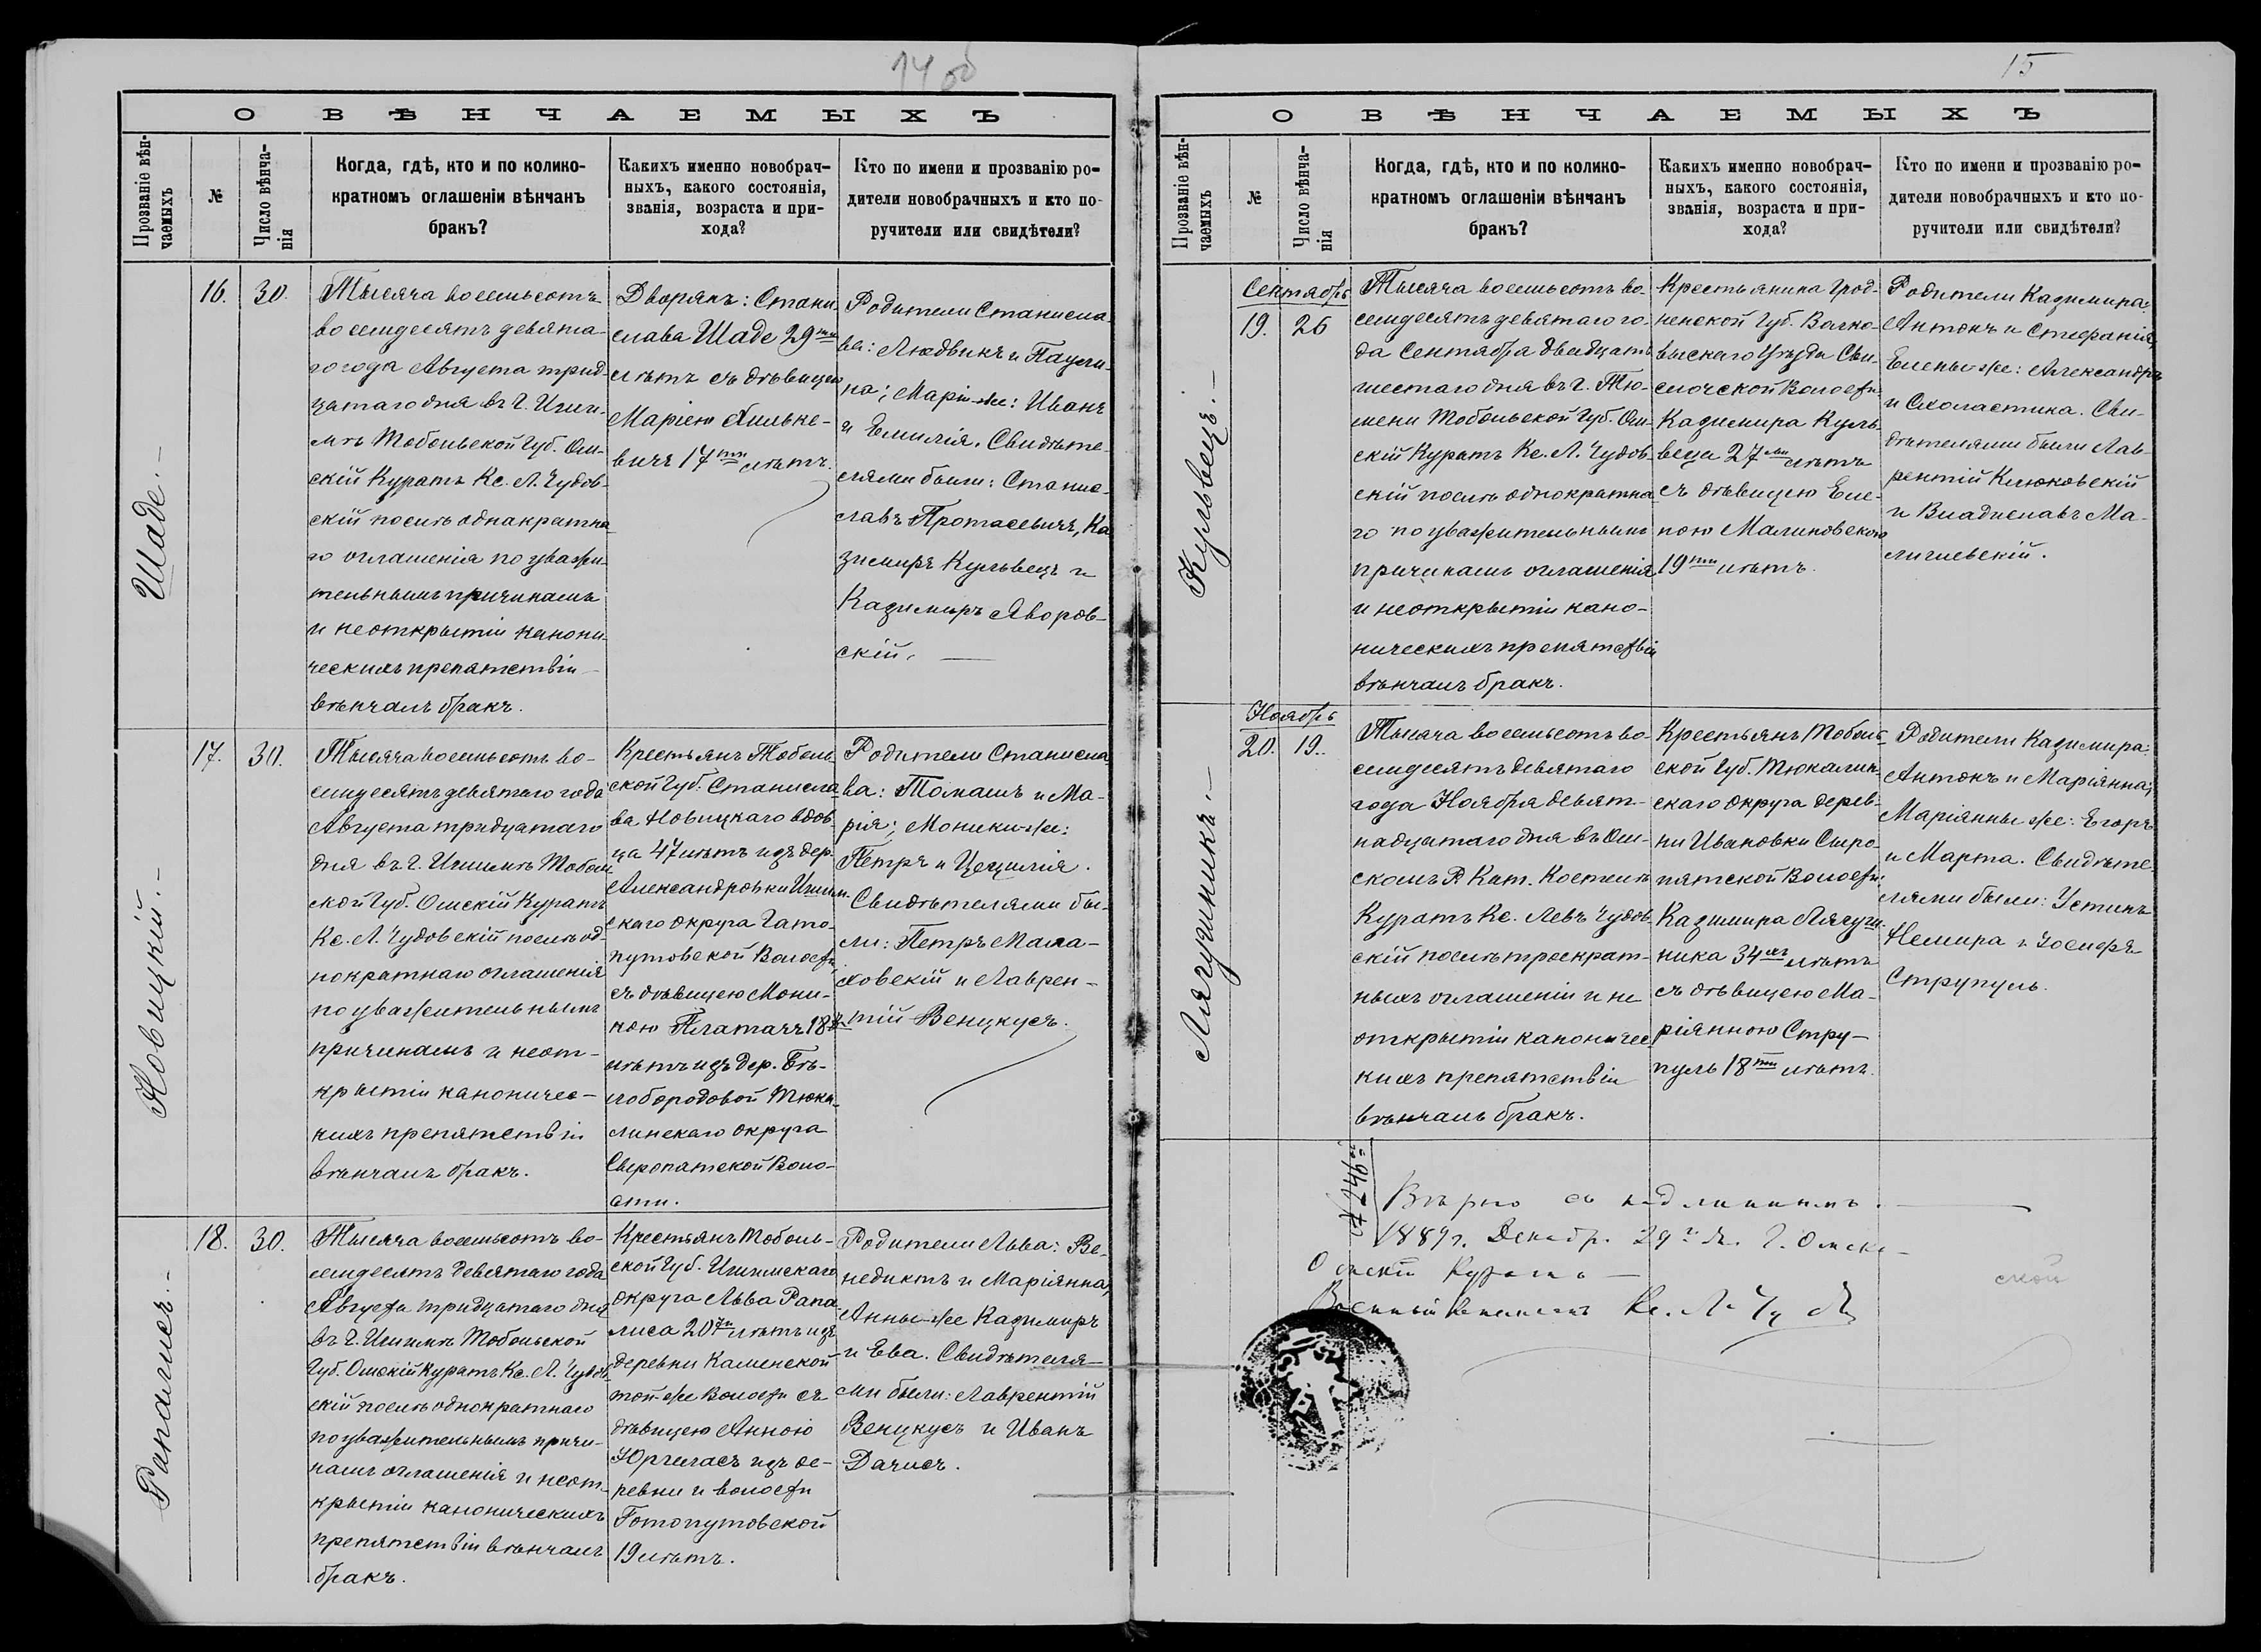 14 об
О ВѢНЧАЕМЫХЪ
Прозваніе вѣн-
чаемыхъ
№
Число вѣнча-
нія
Когда, гдѣ, кто и по колико-
кратномъ оглашеніи вѣнчанъ
бракъ?
Какихъ именно новобрач-
ныхъ, какого состоянія,
званія, возраста и при-
хода?
Кто по имени и прозванію ро-
дители новобрачныхъ и кто по-
ручители или свидѣтели?
Шаде.-
16.
30.
Тысяча восемьсотъ
восемдесятъ девята-
го года Августа трид-
цатаго дня въ г. Иши-
мѣ Тобольской Губ. Ом-
скій Куратъ Кс. Л. Чудов-
скій послѣ однакратна-
го оглашенія по уважи-
тельнымъ причинамъ
и неоткрытіи канони-
ческихъ препятствій
вѣнчалъ бракъ.
Дворянъ: Стани-
слава Шаде 29ти
лѣтъ съ дѣвицею
Маріею
вичъ 17ти лѣтъ.
Родители Станисла-
ва: Людвикъ и Паули-
на; Маріи-же: Иванъ
и Емилія. Свидѣте-
лями были: Станис-
лавъ Протасевичъ, Ка-
зимиръ Кульвецъ и
Казимиръ Яворов-
скій. —
Новицкій.-
17.
30.
Тысяча восемьсотъ во-
семдесятъ девятаго года
Августа тридцатаго
дня въ г. Ишимѣ Тоболь-
ской Губ. Омскій Куратъ
Кс. Л. Чудовскій послѣ од-
нократнаго оглашенія
по уважительнымъ
причинамъ и неот-
крытіи каноничес-
кихъ препятствій
вѣнчалъ бракъ.
Крестьянъ Тоболь-
ской Губ. Станисла-
ва Новицкаго вдов-
ца 47 лѣтъ изъ дер.
Александровки Ишим-
скаго округа Гото-
путовской Волости
съ дѣвицею Мони-
кою Платачъ 18ти
лѣтъ изъ дер. Бѣ-
лобородовой Тюка-
линскаго округа
Сыропатской Воло-
сти.
Родители Станисла-
ва: Томашъ и Ма-
рія; Моники-же:
Петръ и Цецилія.
Свидѣтелями бы-
ли: Петръ Мала-
ховскій и Лаврен-
тій Венцкусъ.
Рапалисъ.-
18.
30.
Тысяча восемьсотъ во-
семдесятъ девятаго года
Августа тридцатаго дня
въ г. Ишимѣ Тобольской
Губ. Омскій Куратъ Кс. Л. Чудов-
скій послѣ однократнаго
по уважительнымъ причи-
намъ оглашенія и неот-
крытіи каноническихъ
препятствій вѣнчалъ
бракъ.
Крестьянъ Тоболь-
ской Губ. Ишимскаго
округа Льва Рапа-
лиса 20ти лѣтъ изъ
деревни Каменской
той-же Волости съ
дѣвицею Анною
Юргиласъ изъ де-
ревни и волости
Готопутовской
19 лѣтъ.
Родители Льва: Бе-
недиктъ и Маріянна,
Анны-же Казимиръ
и Ева. Свидѣтеля-
ми были: Лаврентій
Венцкусъ и Иванъ
Дачисъ.
15
О ВѢНЧАЕМЫХЪ
Прозваніе вѣн-
чаемыхъ
№
Число вѣнча-
нія
Когда, гдѣ, кто и по колико-
кратномъ оглашеніи вѣнчанъ
бракъ?
Какихъ именно новобрач-
ныхъ, какого состоянія,
званія, возраста и при-
хода?
Кто по имени и прозванію ро-
дители новобрачныхъ и кто по-
ручители или свидѣтели?
Кульвецъ.-
Сентябрь
19.
26
Тысяча восемьсотъ во-
семдесятъ девятаго го-
да Сентября двадцать
шестаго дня въ г. Тю-
мени Тобольской Губ. Ом-
скій Куратъ Кс. Л. Чудов-
скій послѣ однократна-
го по уважительнымъ
причинамъ оглашенія
и неоткрытіи кано-
ническихъ препятствій
вѣнчалъ бракъ.
Крестьянина Грод-
ненской Губ. Волко-
выскаго Уѣзда Сви-
слочской Волости
Казимира Куль-
веца 27ми лѣтъ
съ дѣвицею Еле-
ною Малиновскою
19ти лѣтъ.
Родители Казимира:
Антонъ и Стефанія,
Елены-же: Александръ
и Схоластика. Сви-
дѣтелями были Лав-
рентій Клюковскій
и Владиславъ Ма-
лишевскій.
Лягушникъ.-
Ноябрь
20.
19.
Тысяча восемьсотъ во-
семдесятъ девятаго
года Ноября девят-
надцатаго дня въ Ом-
скомъ Р. Кат. Костелѣ
Куратъ Кс. Левъ Чудов-
скій послѣ троекрат-
ныхъ оглашеній и не
открытіи каноничес-
кихъ препятствій
вѣнчалъ бракъ.
Крестьянъ Тоболь-
ской Губ. Тюкалин-
скаго округа дерев-
ни Ивановки Сыро-
пятской Волости:
Казимира Лягуш-
ника 34хъ лѣтъ
съ дѣвицею Ма-
ріянною Стру-
пуль 18ти лѣтъ.
Родители Казимира:
Антонъ и Маріянна;
Маріянны-же: Егоръ
и Марта. Свидѣте-
лями были: Устинъ
Немира и Іосифъ
Струпуль.
Вѣрно съ подлиннымъ.
1889 г. Декабр. 29 г. Омскъ
Омскій Куратъ
Кс. Л.
ской